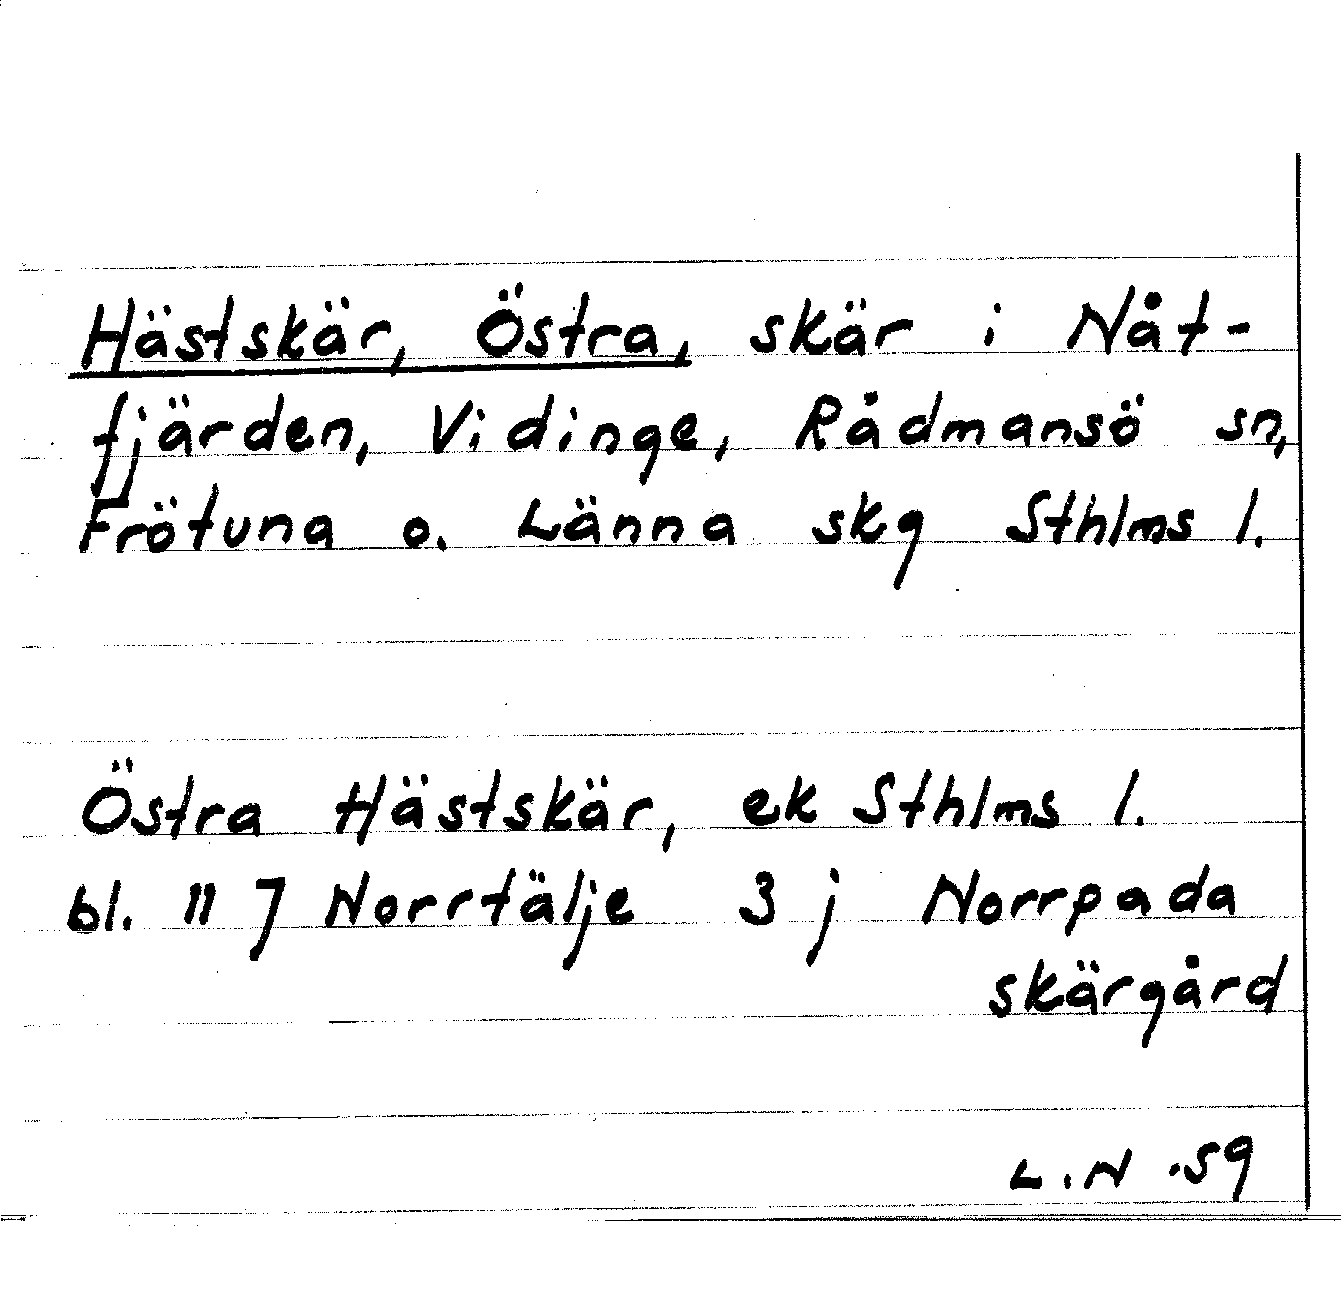 Hästskär, Östra, skär i Nåt-
fjärden, Vidinge, Rådmansö sn,
Frötuna o. Länna skg Sthlms l.
Östra Hästskär, ek Sthlms l.
bl. 11 J Norrtälje 3 j Norrpada
skärgård
L.N .59